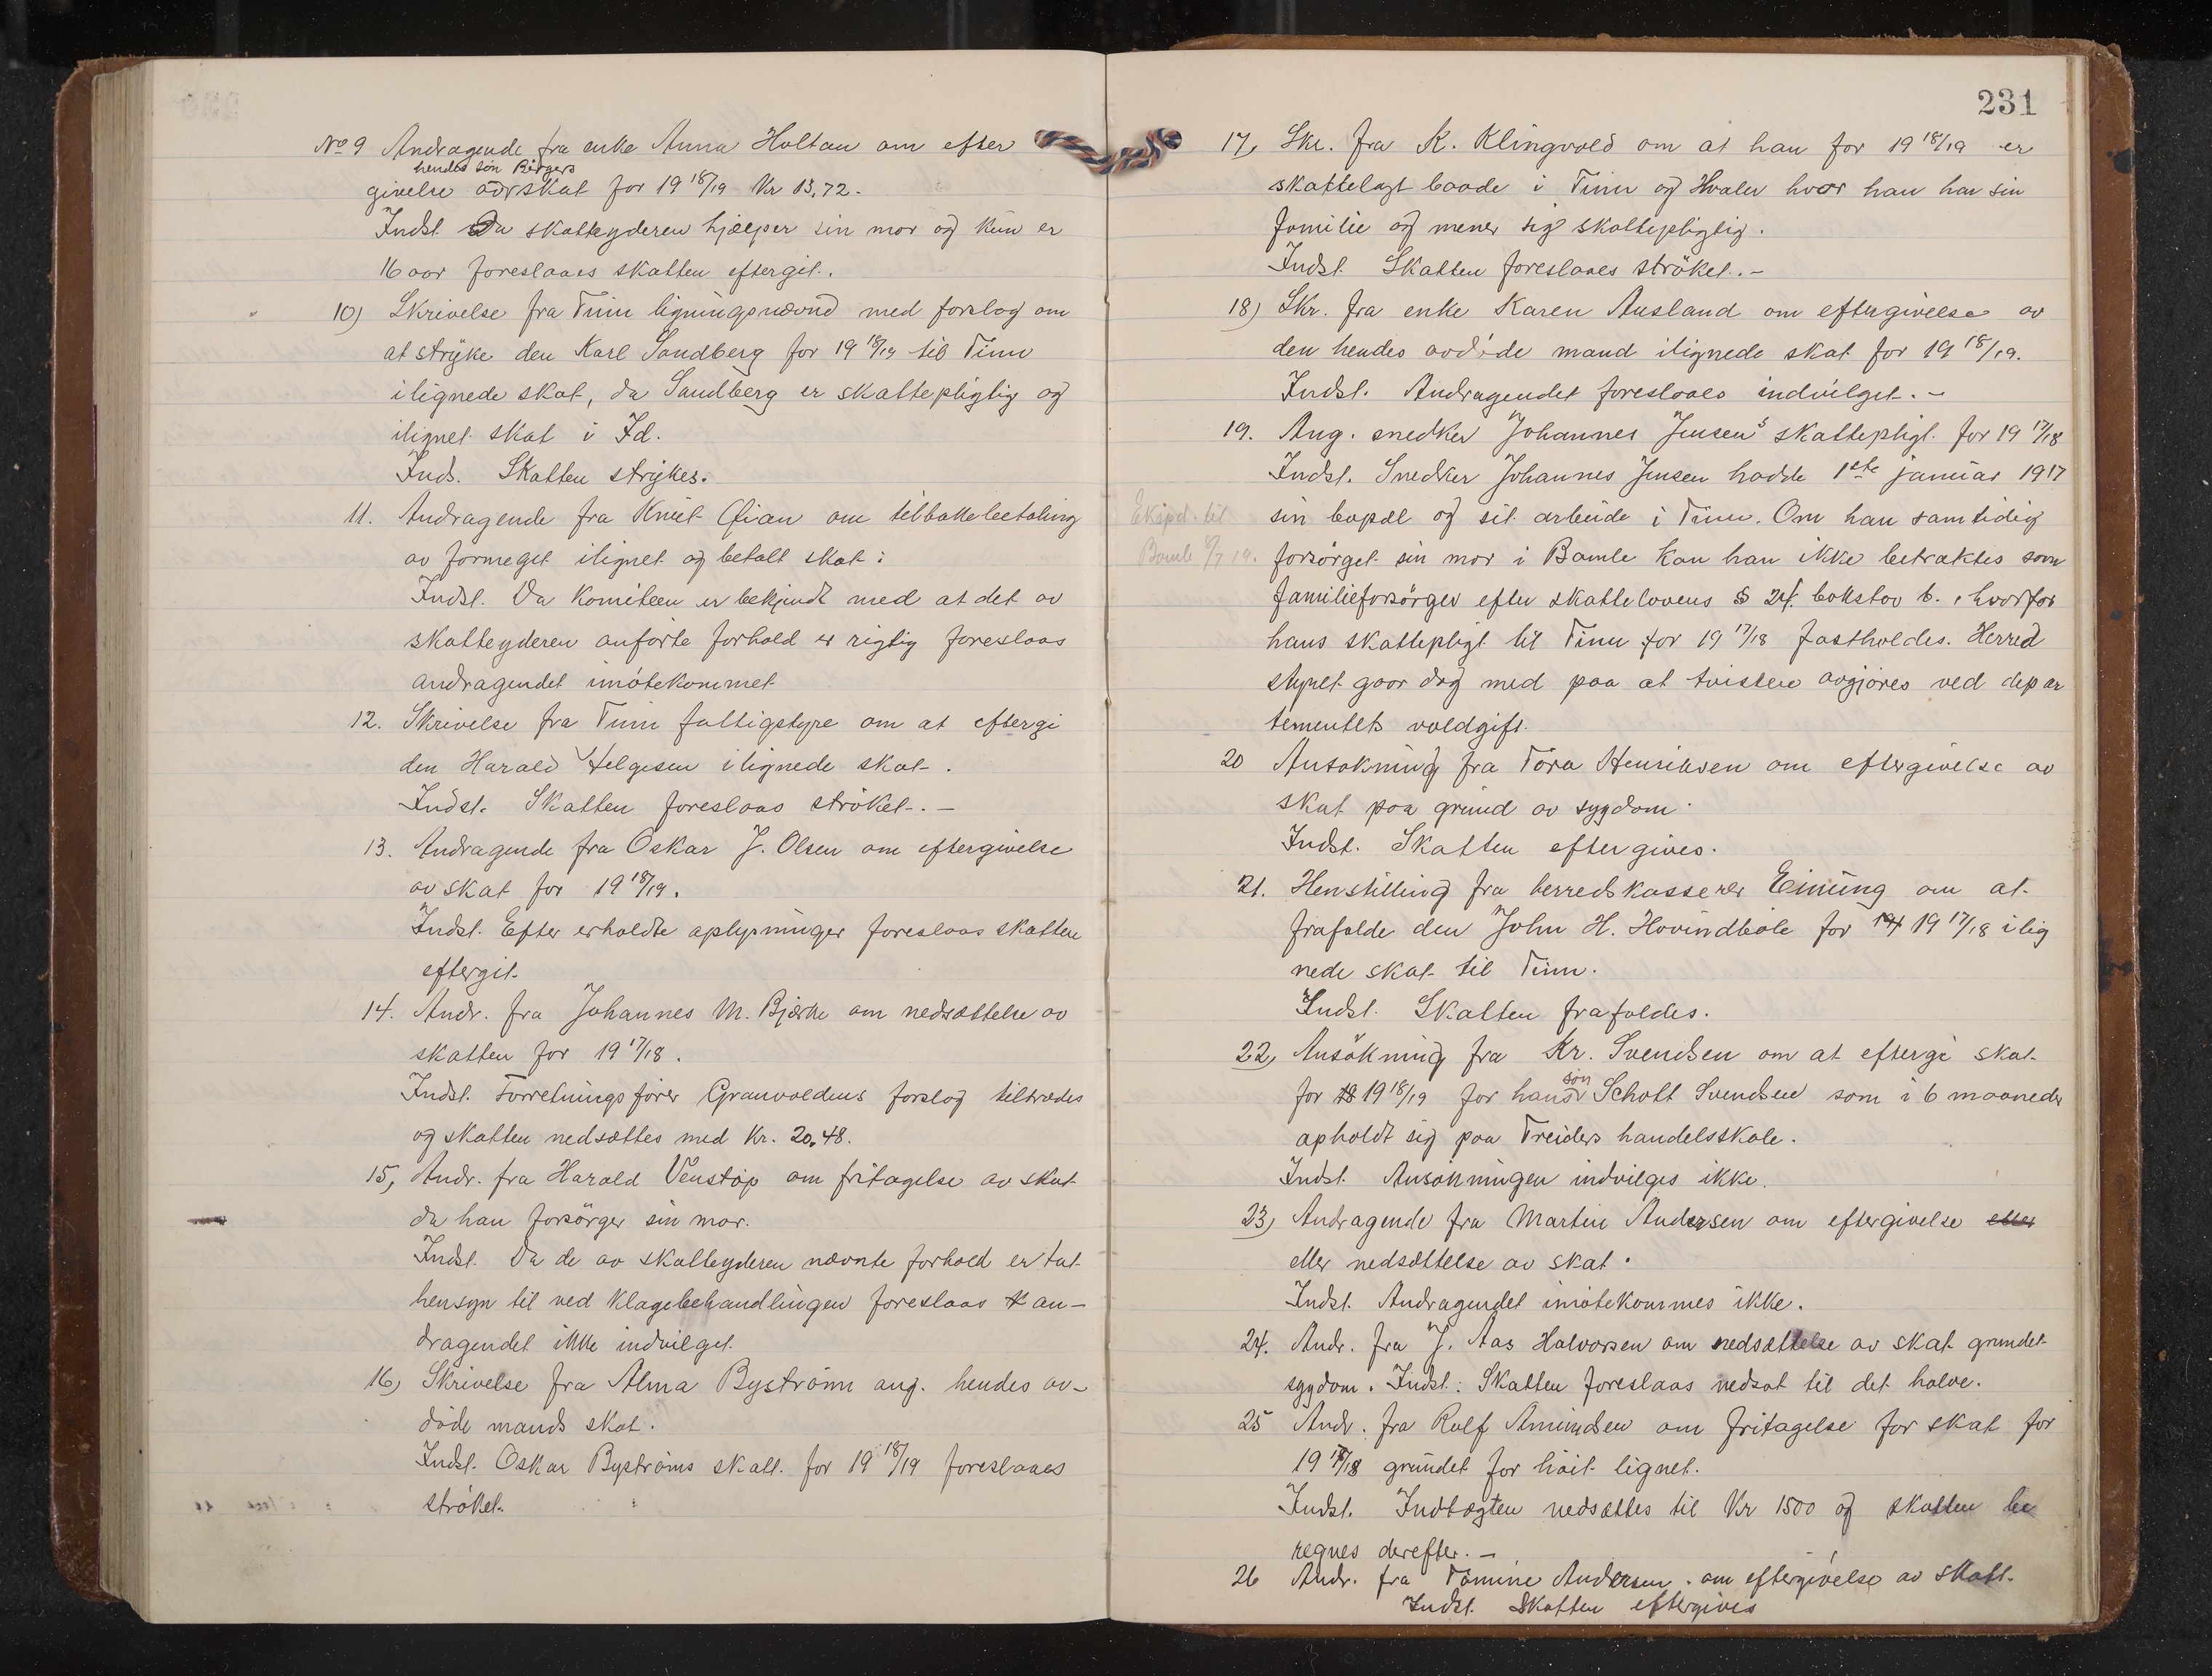 No 9 Andragende fra enke Anna Holtan om efter
hendes søn Birgers
givelse av skat for 19 18/19 Kr 13,72.
Indst. Da skatteyderen hjælper sin mor og kun er
16 aar foreslaaes skatten eftergit.
10) Skrivelse fra Tinn ligningsnævnd med forslag om
at stryke den Karl Sandberg for 19 18/19 til Tinn
ilignede skat, da Sandberg er skattepligtig og
ilignet skat i Id.
Inds. Skatten strykes.
11. Andragende fra Knut Qian om tilbakebetaling
av formeget ilignet og betalt skat:
Indst. Da Komiteen er bekjendt med at det av
skatteyderen anførte forhold er rigtig foreslaas
andragendet imøtekommet
12. Skrivelse fra Tinn fattigstyre om at eftergi
den Harald Helgesen ilignede skat.
Indst. Skatten foreslaas strøket. –
13. Andragende fra Oskar J. Olsen om eftergivelse
av skat for 19 18/19.
Indst. Efter erholdte oplysninger foreslaas skatten
eftergit.
14. Andr. fra Johannes M. Bjerke om nedsættelse av
skatten for 19 17/18.
Indst. Forretningsfører Granvoldens forslag tiltrædes
og skatten nedsættes med Kr. 20,48.
15, Andr. fra Harald Venstøp om fritagelse av skat
da han forsørger sin mor.
Indst. Da de av skatteyderen nævnte forhold er tat
hensyn til ved klagebehandlingen foreslaas an-
dragendet ikke indvilget.
16) Skrivelse fra Alma Byström ang. hendes av-
døde mands skat.
Indst. Oskar Byströms skatt. for 19 18/19 foreslaaes
strøket.
231
17, Skr. fra K. Klingvold om at han for 19 18/19 er
skattelagt baade i Tinn og Hvaler hvor han har sin
familie og mener sig skattepligtig.
Indst. Skatten foreslaaes strøket. –
18) Skr. fra enke Karen Ausland om eftergivelse av
den hendes avdøde mand ilignede skat for 19 18/19.
Indst. Andragendet foreslaaes indvilget. –
19. Ang. snedker Johannes Jensens skattepligt. for 19 17/18
Indst. Snedker Johannes Jensen hadde 1ste januar 1917
Ekspd. til
sin bopæl og sit arbeide i Tinn. Om han samtidig
Bamle 8/7 19.
forsørget sin mor i Bamle kan han ikke betraktes som
familieforsørger efter skattelovens § 24. bokstav b. , hvorfor
hans skattepligt til Tinn for 19 17/18 fastholdes. Herred
styret gaar dog med paa at tvisten avgjøres ved depar
tementets voldgift.
20 Ansøkning fra Tora Henriksen om eftergivelse av
skat paa grund av sygdom.
Indst. Skatten eftergives.
21. Henstilling fra herredskasserer Einung om at
frafalde den John H. Hovindbøle for 19 17/18 ilig
nede skat til Tinn.
Indst. Skatten frafaldes.
22) Ansøkning fra Kr. Svendsen om at eftergi skat
for 18 19 18/19 for hans søn Schott Svendsen som i 6 maaneder
opholdt sig paa Treiders handelsskole.
Indst. Ansøkningen indvilges ikke.
23) Andragende fra Martin Andersen om eftergivelse eller
eller nedsættelse av skat.
Indst. Andragendet imøtekommes ikke.
24. Andr. fra J. Aas Halvorsen om nedsættelse av skat grundet
sygdom. Indst: Skatten foreslaas nedsat til det halve.
25 Andr. fra Rolf Amundsen om fritagelse for skat for
19 17/18 grundet for høit lignet.
Indst. Indtægten nedsættes til Kr 1500 og skatten be
regnes derefter. –
26 Andr. fra Tomine Andersen. om eftergivelse av skatt.
Indst. Skatten eftergives